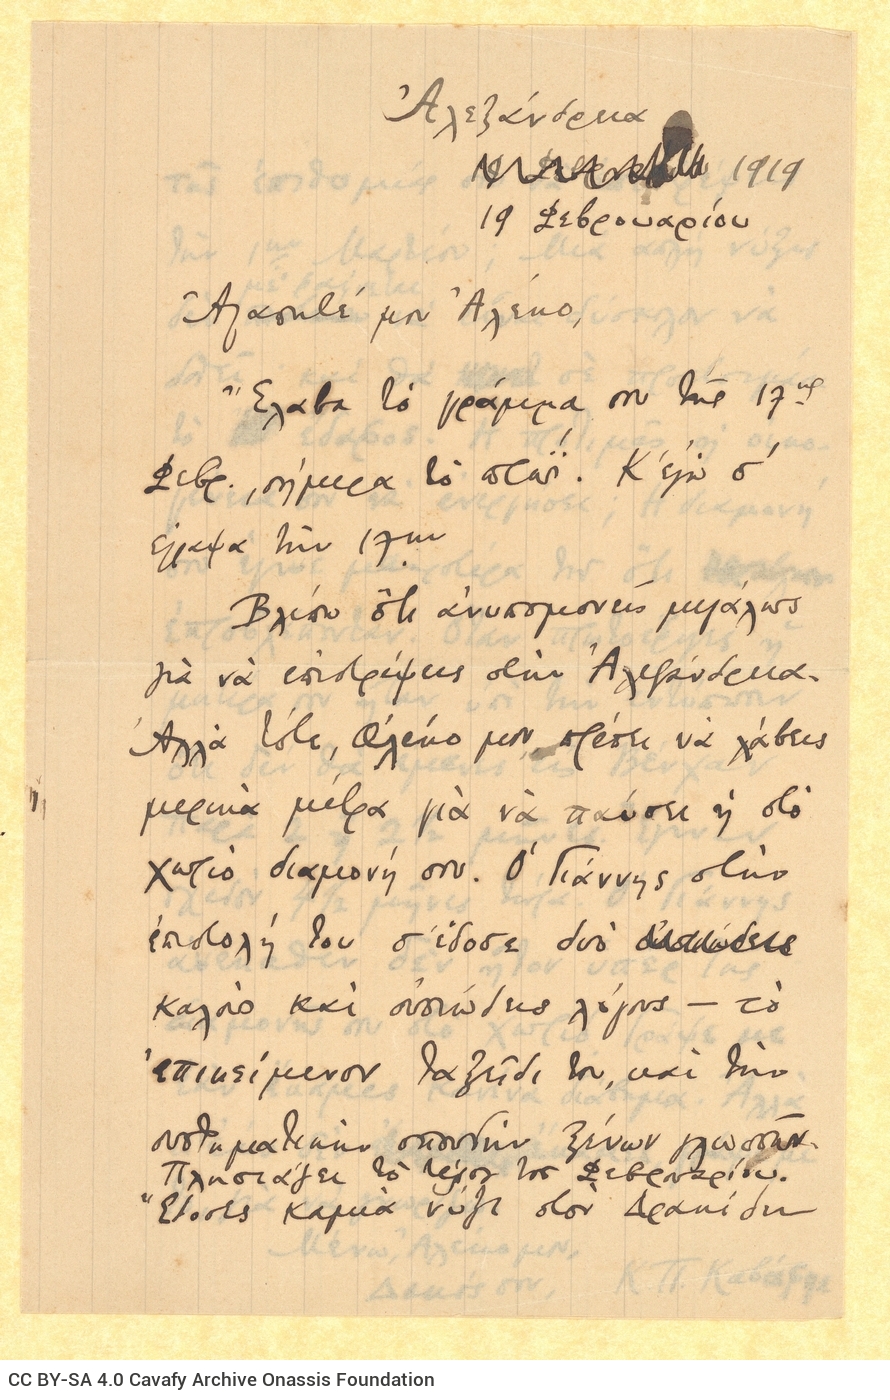 Ἀλεξάνδρεια
1919
19 Φεβρουαρίου
Ἀγαπητέ μου Ἀλέκο,
Ἔλαβα τὸ γράμμα σου τῆς 17ης
Φεβρ., σήμερα τὸ πρωΐ. Κ' ἐγὼ σ'
ἔγραψα τὴν 17ην
Βλέπω ὅτι ἀνυπομονεῖς μεγάλως
γιὰ νὰ ἐπιστρέψεις στὴν Ἀλεξάνδρεια.
Ἀλλὰ τότε, Ἀλέκο μου, πρέπει νὰ λάβεις
μερικὰ μέτρα γιὰ νὰ παύσει ἡ στὸ
χωριὸ διαμονή σου. Ὁ Γιάννης στὴν
ἐπιστολή του σ' ἔδοσε δυὸ
καλοὺς καὶ οὐσιώδεις λόγους — τὸ
ἐπικείμενον ταξεῖδι του, καὶ τὴν
συστηματικὴν σπουδὴν ξένων γλωσσῶν.
Πλησιάζει τὸ τέλος τοῦ Φεβρουαρίου.
Ἔδοσες καμιὰ νύξι στὸν Δρακίδη
CC BY-SA 4.0 Cavafy Archive Onassis Foundation